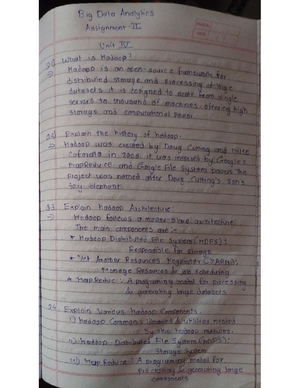 Big Data Analytics
Assignment - II
Unit IV
What is Hadoop?
Hadoop is an open-source framework for
distributed storage and processing of large
datasets it is designed to scale from single
servers to thousand of machines offering high
storage and computational power.
Explain the history of hadoop.
Hadoop was created by Doug Cutting and Mike
Cafarella in it was inspired by Google's
mapReduce and Google File System papers The
Project was named after Doug Cutting's Son's
toy elephant
Explain Hadoop Architecture
Hadoop follows a master slave architecture
The main components are :-
* Hadoop Distributed File System (HDFS):
Responsible for storage
* Yet Another Resources Negotiator (YARN):
Manage Resources job scheduling
* MapReduce : A programming model for processing
& generating large datasets
Explain Various Hadoop Components.
i) Hadoop Common: utilities needed
by the hadoop modules.
ii) Hadoop Distributed File System (HDFS):
Storage System
iii) MapReduce : A programming model for
processing & generating large